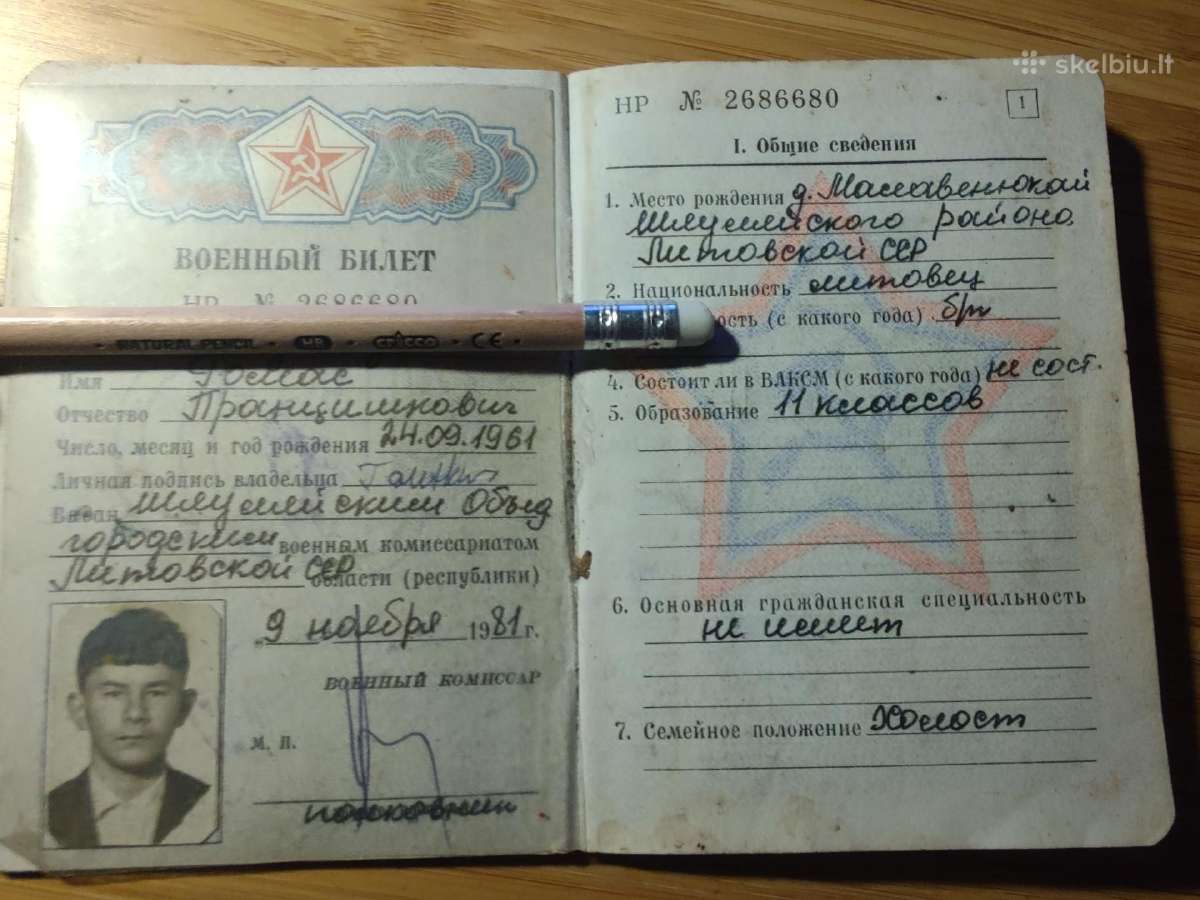 skelbiu.lt
ВОЕННЫЙ БИЛЕТ
НР № 2686680
NATURAL PENCIL HB CRICCO CE
Имя Томас
Отчество Пранцишкович
Число, месяц и год рождения 24.09.1961
Личная подпись владельца
Выдан Шяуляйским Объед
городским военным комиссариатом
Литовской ССР области (республики)
9 ноября 1981 г.
ВОЕННЫЙ КОМИССАР
М. П.
полковник
НР № 2686680
1
I. Общие сведения
1. Место рождения д.
Шяуляйского района
Литовской ССР
2. Национальность литовец
ость (с какого года) б/п
4. Состоит ли в ВЛКСМ (с какого года) не сост.
5. Образование 11 классов
6. Основная гражданская специальность
не имеет
7. Семейное положение Холост